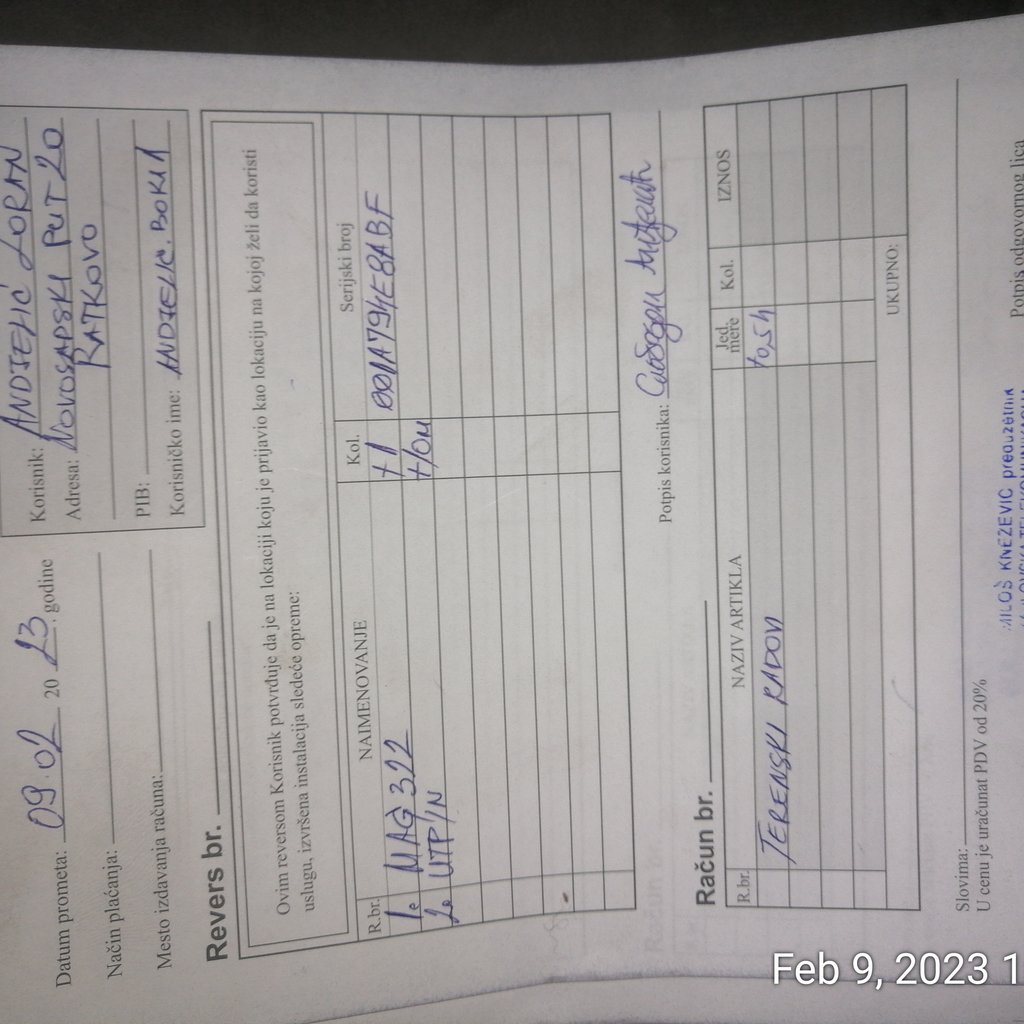 Datum prometa: 09.02 2023. godine
Način plaćanja:
Mesto izdavanja računa:
Korisnik: ANDJELIĆ ZORAN
Adresa: NOVOSADSKI PUT 20
RATKOVO
PIB:
Korisničko ime: ANDJELIC.BOKA1
Revers br.
Ovim reversom Korisnik potvrđuje da je na lokaciji koju je prijavio kao lokaciju na kojoj želi da koristi
uslugu, izvršena instalacija sledeće opreme:
R.br. NAIMENOVANJE Kol. Serijski broj
1. MAG 322 +1 001A794E8ABF
2. UTP/N
Potpis korisnika:
Račun br.
R.br. NAZIV ARTIKLA Jed. mere Kol. IZNOS
TERENSKI RADOVI
UKUPNO:
Slovima:
U cenu je uračunat PDV od 20%
MILOŠ KNEŽEVIĆ preduzetnik
Potpis odgovornog lica
Feb 9, 2023 1